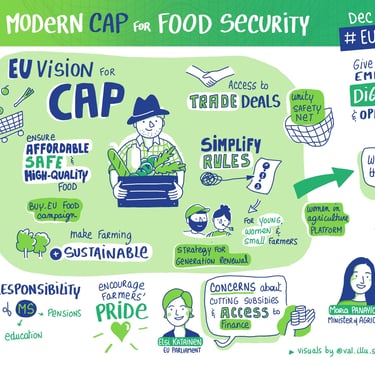 MODERN CAP FOR FOOD SECURITY
DEC
# EU
EU VISION FOR
CAP
ACCESS to
TRADE DEALS
UNITY
SAFETY
NET
ensure
AFFORDABLE
SAFE &
HIGH-QUALITY
FOOD
SIMPLIFY
RULES
1
2
3
BUY.EU FOOD
campaign
FOR YOUNG,
women &
small FARMERS
make FARMING
+ SUSTAINABLE
STRATEGY FOR
GENERATION RENEWAL
women in
agriculture
PLATFORM
Give
&
of MS
PENSIONS
education
ENCOURAGE
FARMERS'
PRIDE
Elsi KATAINEN
EU PARLIAMENT
CONCERNS about
CUTTING SUBSIDIES
& ACCESS to
Finance
MINISTER of
visuals by @val.illu.s